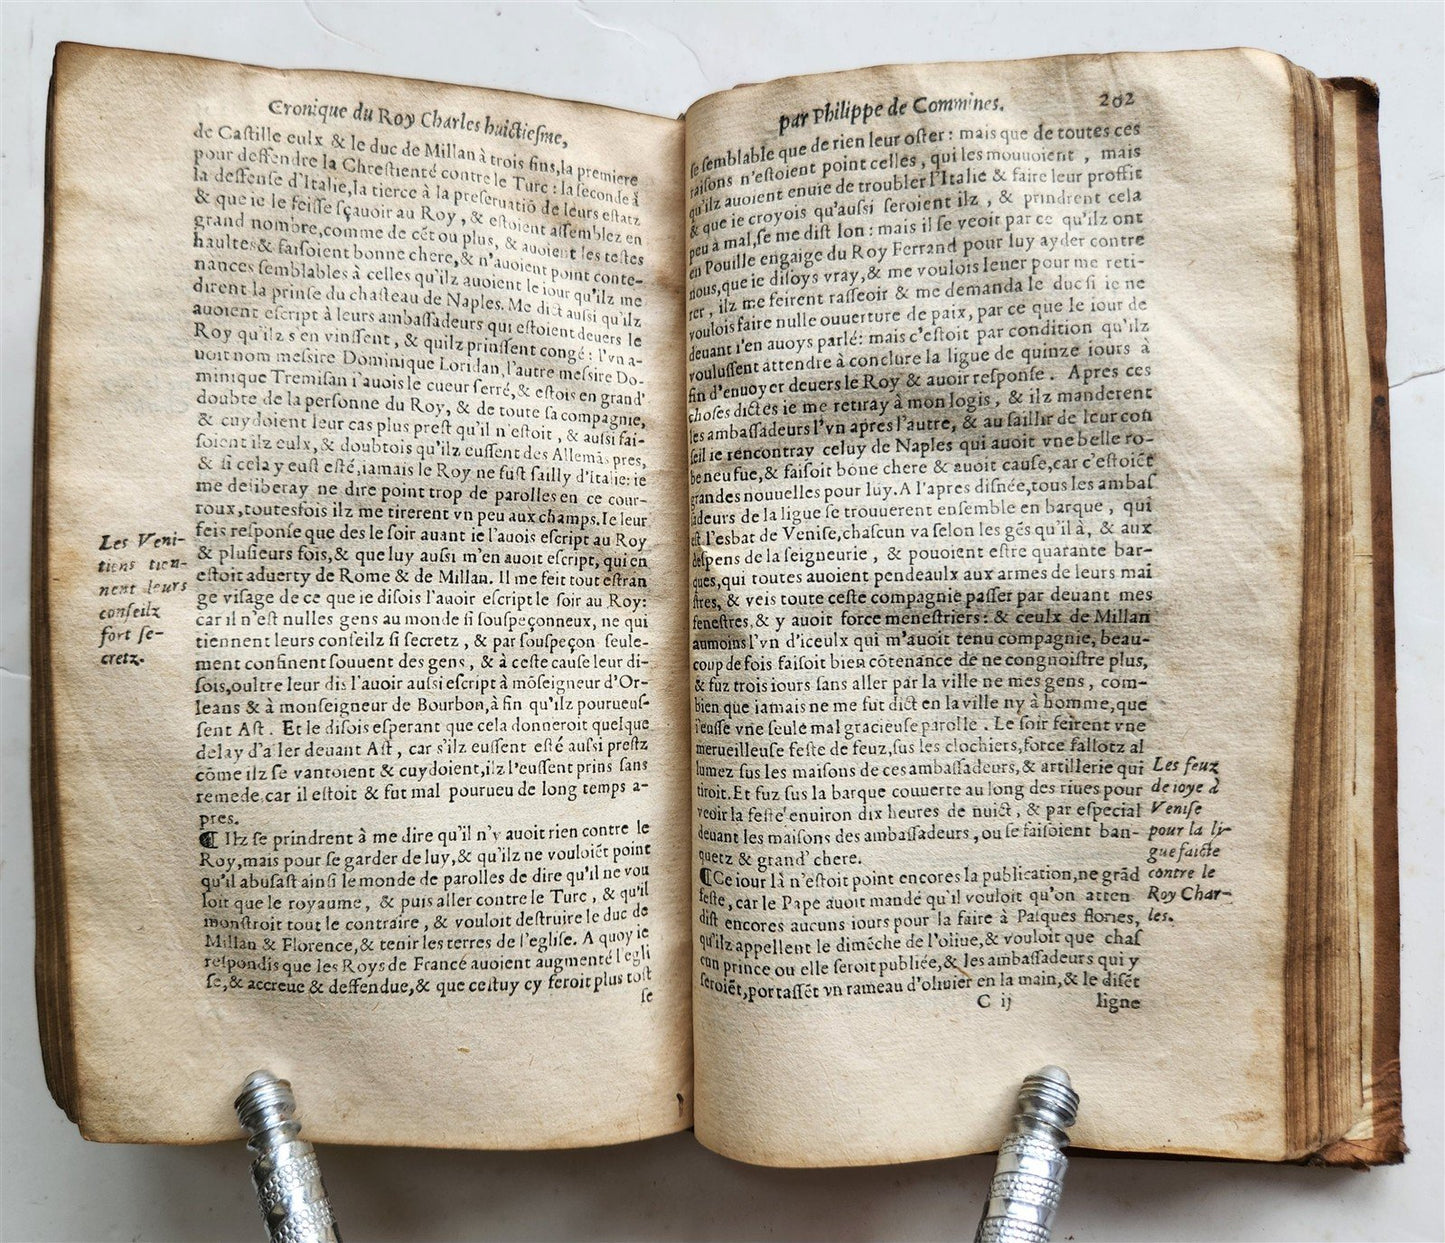 Cronique du Roy Charles huictiesme,
de Castille eulx & le duc de Millan à trois fins, la premiere
pour deffendre la Chrestienté contre le Turc : la seconde à
la deffense d'Italie, la tierce à la preseruatiō de leurs estatz
& que ie le feisse sçauoir au Roy, & estoient assemblez en
grand nombre, comme de cēt ou plus, & auoient les testes
haultes & faisoient bonne chere, & n'auoient point conte-
nances semblables à celles qu'ilz auoient le iour qu'ilz me
dirent la prinse du chasteau de Naples. Me dict aussi qu'ilz
auoient escript à leurs ambassadeurs qui estoient deuers le
Roy qu'ilz s'en vinssent, & quilz prinssent congé : l'vn a-
uoit nom messire Dominique Loridan, l'autre messire Do-
minique Tremisan i'auois le cueur serré, & estois en grand'
doubte de la personne du Roy, & de toute sa compagnie,
& cuydoient leur cas plus prest qu'il n'estoit, & aussi fai-
soient ilz eulx, & doubtois qu'ilz eussent des Allemās pres,
& si cela y eust esté, iamais le Roy ne fust sailly d'Italie: ie
me deliberay ne dire point trop de parolles en ce cour-
roux, toutesfois ilz me tirerent vn peu aux champs. Ie leur
feis response que des le soir auant ie l'auois escript au Roy
& plusieurs fois, & que luy aussi m'en auoit escript, qui en
estoit aduerty de Rome & de Millan. Il me feit tout estran
ge visage de ce que ie disois l'auoir escript le soir au Roy:
car il n'est nulles gens au monde si souspeçonneux, ne qui
tiennent leurs conseilz si secretz, & par souspeçon seule-
ment confinent souuent des gens, & à ceste cause leur di-
sois, oultre leur dis l'auoir aussi escript à mōseigneur d'Or-
leans & à monseigneur de Bourbon, à fin qu'ilz pourueus-
sent Ast. Et le disois esperant que cela donneroit quelque
delay d'aler deuant Ast, car s'ilz eussent esté aussi prestz
cōme ilz se vantoient & cuydoient, ilz l'eussent prins sans
remede, car il estoit & fut mal pourueu de long temps a-
pres.
¶ Ilz se prindrent à me dire qu'il n'y auoit rien contre le
Roy, mais pour se garder de luy, & qu'ilz ne vouloiēt point
qu'il abusast ainsi le monde de parolles de dire qu'il ne vou
loit que le royaume, & puis aller contre le Turc, & qu'il
monstroit tout le contraire, & vouloit destruire le duc de
Millan & Florence, & tenir les terres de l'eglise. A quoy ie
respondis que les Roys de Francé auoient augmenté l'egli
se, & accreue & deffendue, & que cestuy cy feroit plus tost
se
Les Veni-
tiens tien-
nent leurs
conseilz
fort se-
cretz.
par Philippe de Commines. 202
se semblable que de rien leur oster : mais que de toutes ces
raisons n'estoient point celles, qui les mouuoient, mais
qu'ilz auoient enuie de troubler l'Italie & faire leur proffit
& que ie croyois qu'aussi feroient ilz, & prindrent cela
peu à mal, se me dist lon : mais il se veoit par ce qu'ilz ont
en Pouille engaige du Roy Ferrand pour luy ayder contre
nous, que ie disoys vray, & me voulois leuer pour me reti-
rer, ilz me feirent rasseoir & me demanda le duc si ie ne
voulois faire nulle ouuerture de paix, par ce que le iour de
deuant i'en auoys parlé: mais c'estoit par condition qu'ilz
voulussent attendre à conclure la ligue de quinze iours à
fin d'enuoyer deuers le Roy & auoir response. Apres ces
choses dictes ie me retiray à mon logis, & ilz manderent
les ambassadeurs l'vn apres l'autre, & au saillir de leur con
seil ie rencontray celuy de Naples qui auoit vne belle ro-
be neufue, & faisoit bōne chere & auoit cause, car c'estoiēt
grandes nouuelles pour luy. A l'apres disnée, tous les ambas
sadeurs de la ligue se trouuerent ensemble en barque, qui
est l'esbat de Venise, chascun va selon les gēs qu'il à, & aux
despens de la seigneurie, & pouoient estre quarante bar-
ques, qui toutes auoient pendeaulx aux armes de leurs mai
stres, & veis toute ceste compagnie passer par deuant mes
fenestres, & y auoit force menestriers : & ceulx de Millan
aumoins l'vn d'iceulx qui m'auoit tenu compagnie, beau-
coup de fois faisoit bien cōtenance de ne congnoistre plus,
& fuz trois iours sans aller par la ville ne mes gens, com-
bien que iamais ne me fut dict en la ville ny à homme, que
i'eusse vne seule mal gracieuse parolle. Le soir feirent vne
merueilleuse feste de feuz, sus les clochiers, force fallotz al
lumez sus les maisons de ces ambassadeurs, & artillerie qui
tiroit. Et fuz sus la barque couuerte au long des riues pour
veoir la feste enuiron dix heures de nuict, & par especial
deuant les maisons des ambassadeurs, ou se faisoient ban-
quetz & grand' chere.
¶ Ce iour là n'estoit point encores la publication, ne grād
feste, car le Pape auoit mandé qu'il vouloit qu'on atten
dist encores aucuns iours pour la faire à Pasques flories,
qu'ilz appellent le dimēche de l'oliue, & vouloit que chas
cun prince ou elle seroit publiée, & les ambassadeurs qui y
seroiēt, portassēt vn rameau d'oliuier en la main, & le disēt
C ij ligne
Les feuz
de ioye à
Venise
pour la li-
gue faicte
contre le
Roy Char-
les.